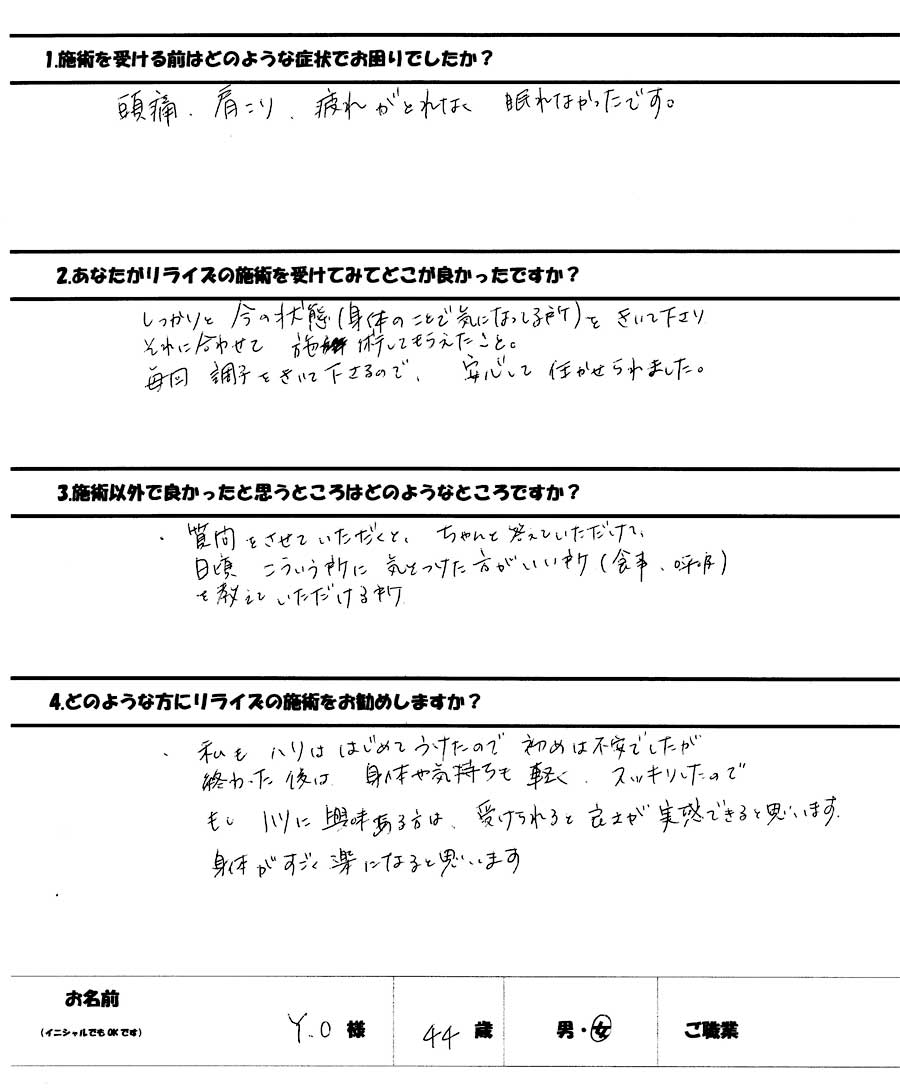 1.施術を受ける前はどのような症状でお困りでしたか？
頭痛、肩こり、疲れがとれなく 眠れなかったです。
2.あなたがリライズの施術を受けてみてどこが良かったですか？
しっかりと 今の状態(身体のことで気になってる所)を きいて下さり
それに合わせて 施術してもらえたこと。
毎回 調子をきいて下さるので、 安心して 任せられました。
3.施術以外で良かったと思うところはどのようなところですか？
・質問をさせていただくと、ちゃんと答えていただけて、
日頃 こういう所に 気をつけた方がいい所(食事、呼吸)
を教えていただける所
4.どのような方にリライズの施術をお勧めしますか？
・私も ハリは はじめて うけたので 初めは不安でしたが
終わった後は 身体や気持ちも 軽く、スッキリしたので
もし ハリに 興味ある方は、受けられると 良さが 実感できると思います.
身体がすごく楽になると思います
お名前
(イニシャルでもOKです)
Y.O 様 44 歳 男・女 ご職業